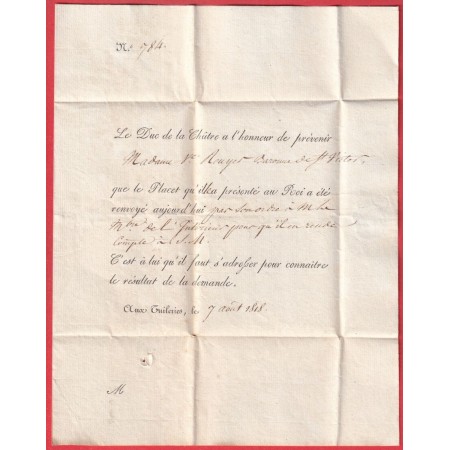 N.° 784.
Le Duc de la Châtre a l'honneur de prévenir
Madame Ve Baronne de St Victor
que le Placet qu'elle a présenté au Roi a été
renvoyé aujourd'hui par son ordre à M. le
Mtre de l'Intérieur pour qu'il en rende
compte à S. M.
C'est à lui qu'il faut s'adresser pour connaître
le résultat de la demande.
Aux Tuileries, le 7 août 1818.
M